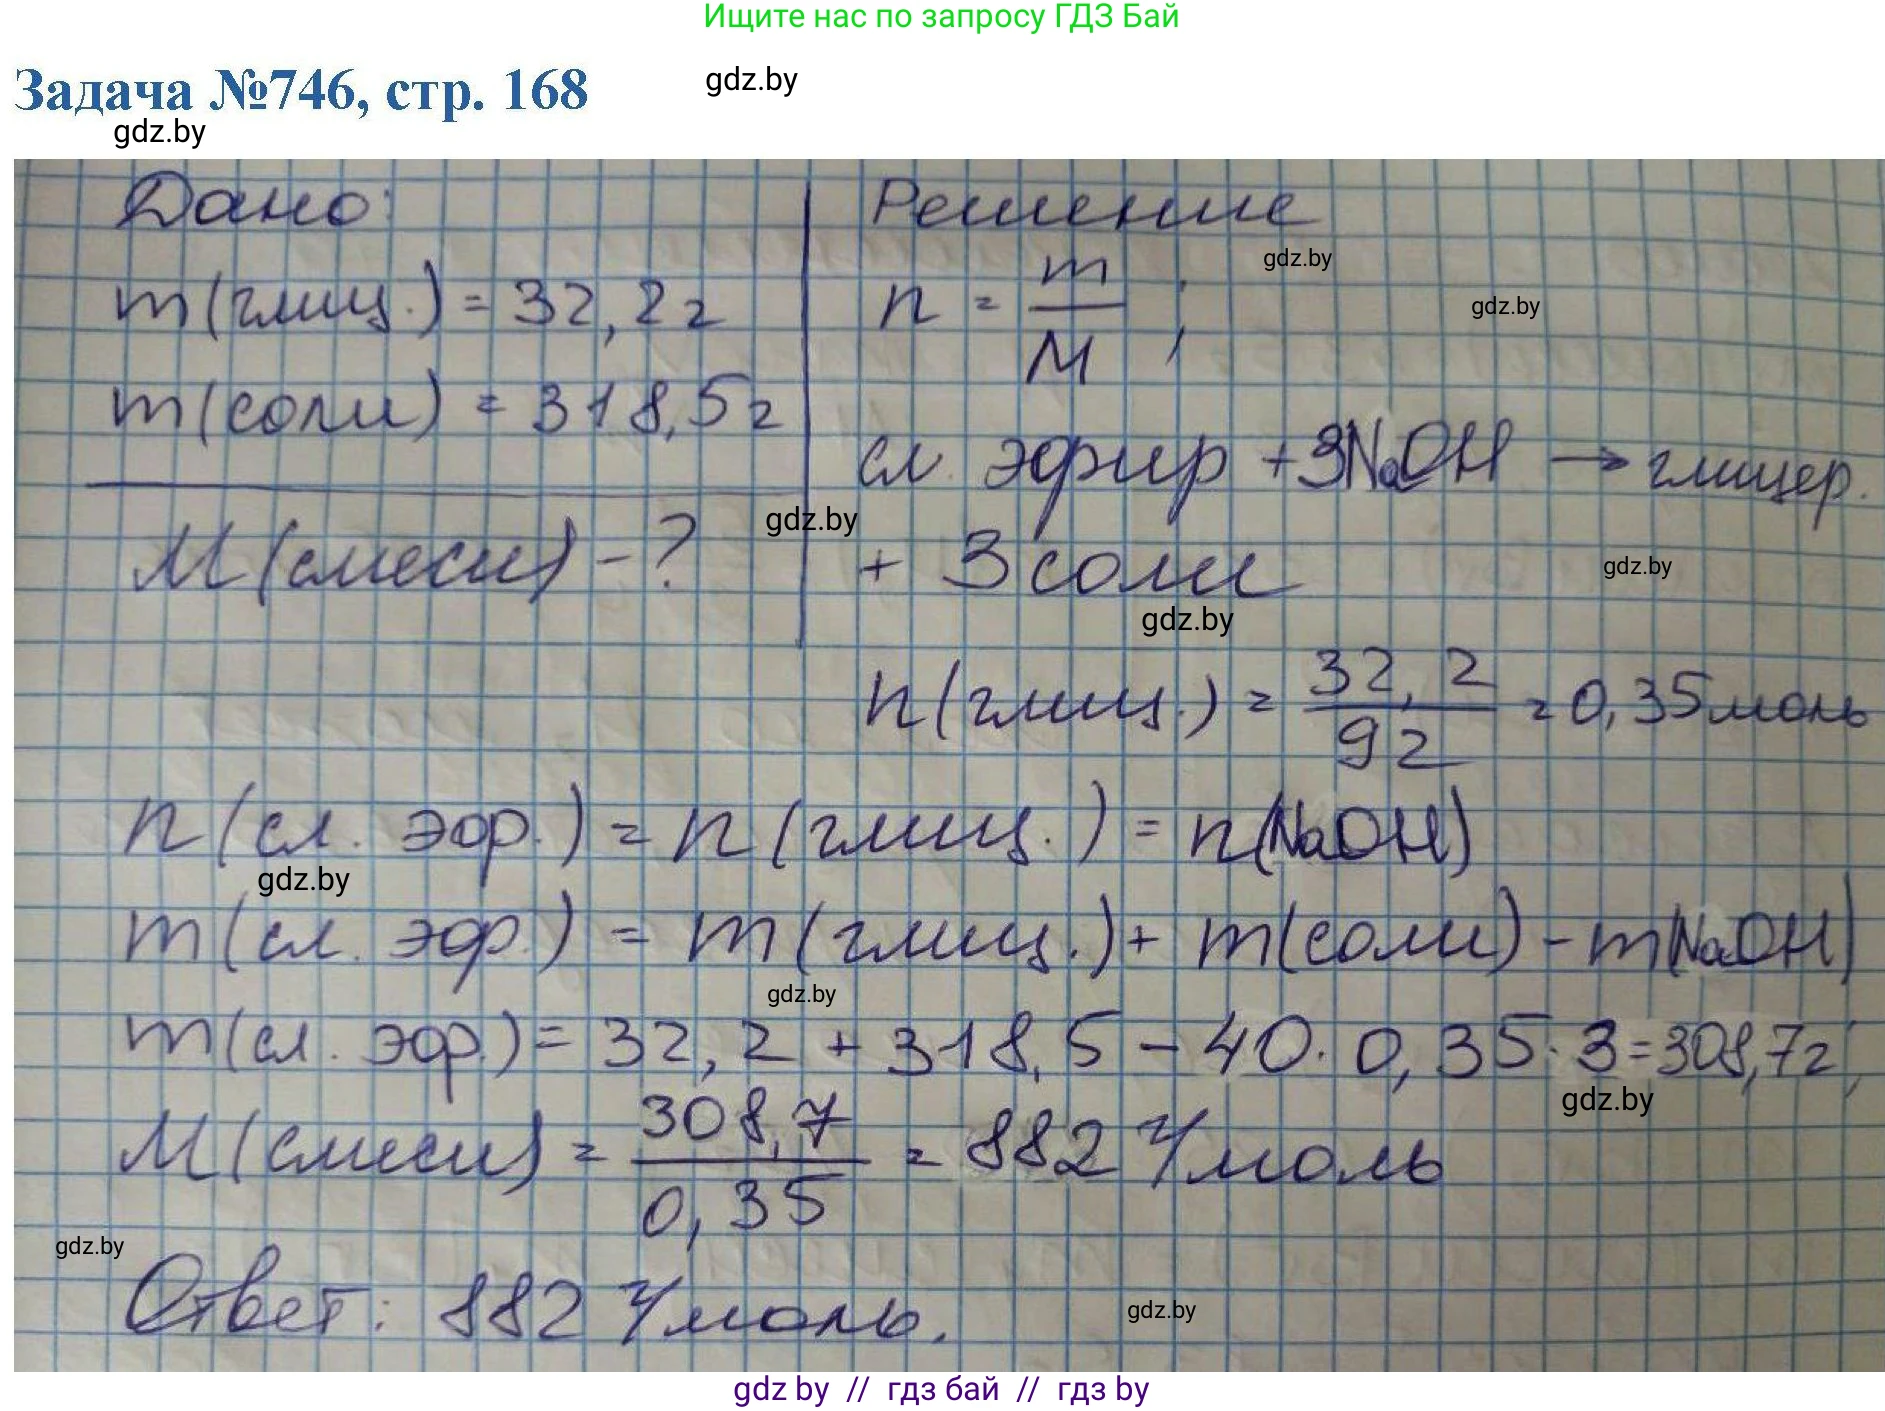 Ищите нас по запросу ГДЗ Бай
Задача №746, стр. 168
gdz.by
gdz.by
Дано:
m(глиц.) = 32,2г
m(соли) = 318,5г
M(смеси) - ?
Решение
gdz.by
n = m/M ;
gdz.by
сл. эфир + 3NaOH → глицер.
gdz.by
+ 3 соли
gdz.by
gdz.by
n(глиц.) = 32,2/92 = 0,35 моль
n(сл. эфр.) = n(глиц.) = n(NaOH)
gdz.by
m(сл. эфр.) = m(глиц.) + m(соли) - m(NaOH)
gdz.by
m(сл. эфр.) = 32,2 + 318,5 - 40 · 0,35 · 3 = 308,7г;
gdz.by
M(смеси) = 308,7/0,35 = 882 г/моль
gdz.by
Ответ: 882 г/моль.
gdz.by
gdz by // гдз бай // гдз by